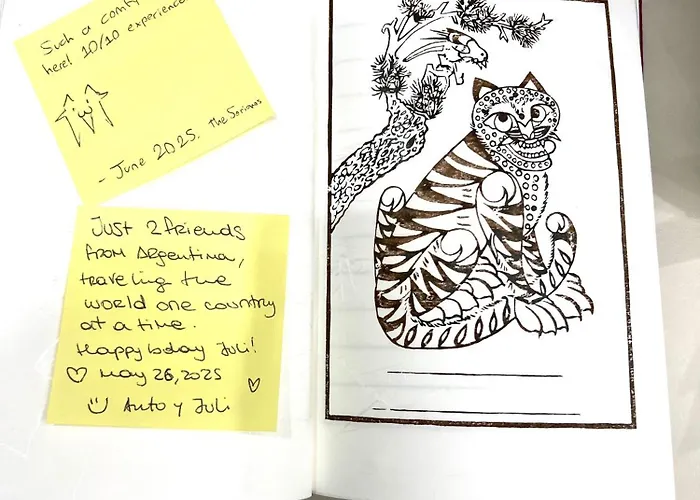 Such a comfy
here! 10/10 experience
- June 2025. The Sorianos
Just 2 friends
from Argentina,
traveling the
world one country
at a time.
Happy bday Juli!
♡ May 26, 2025 ♡
Anto y Juli